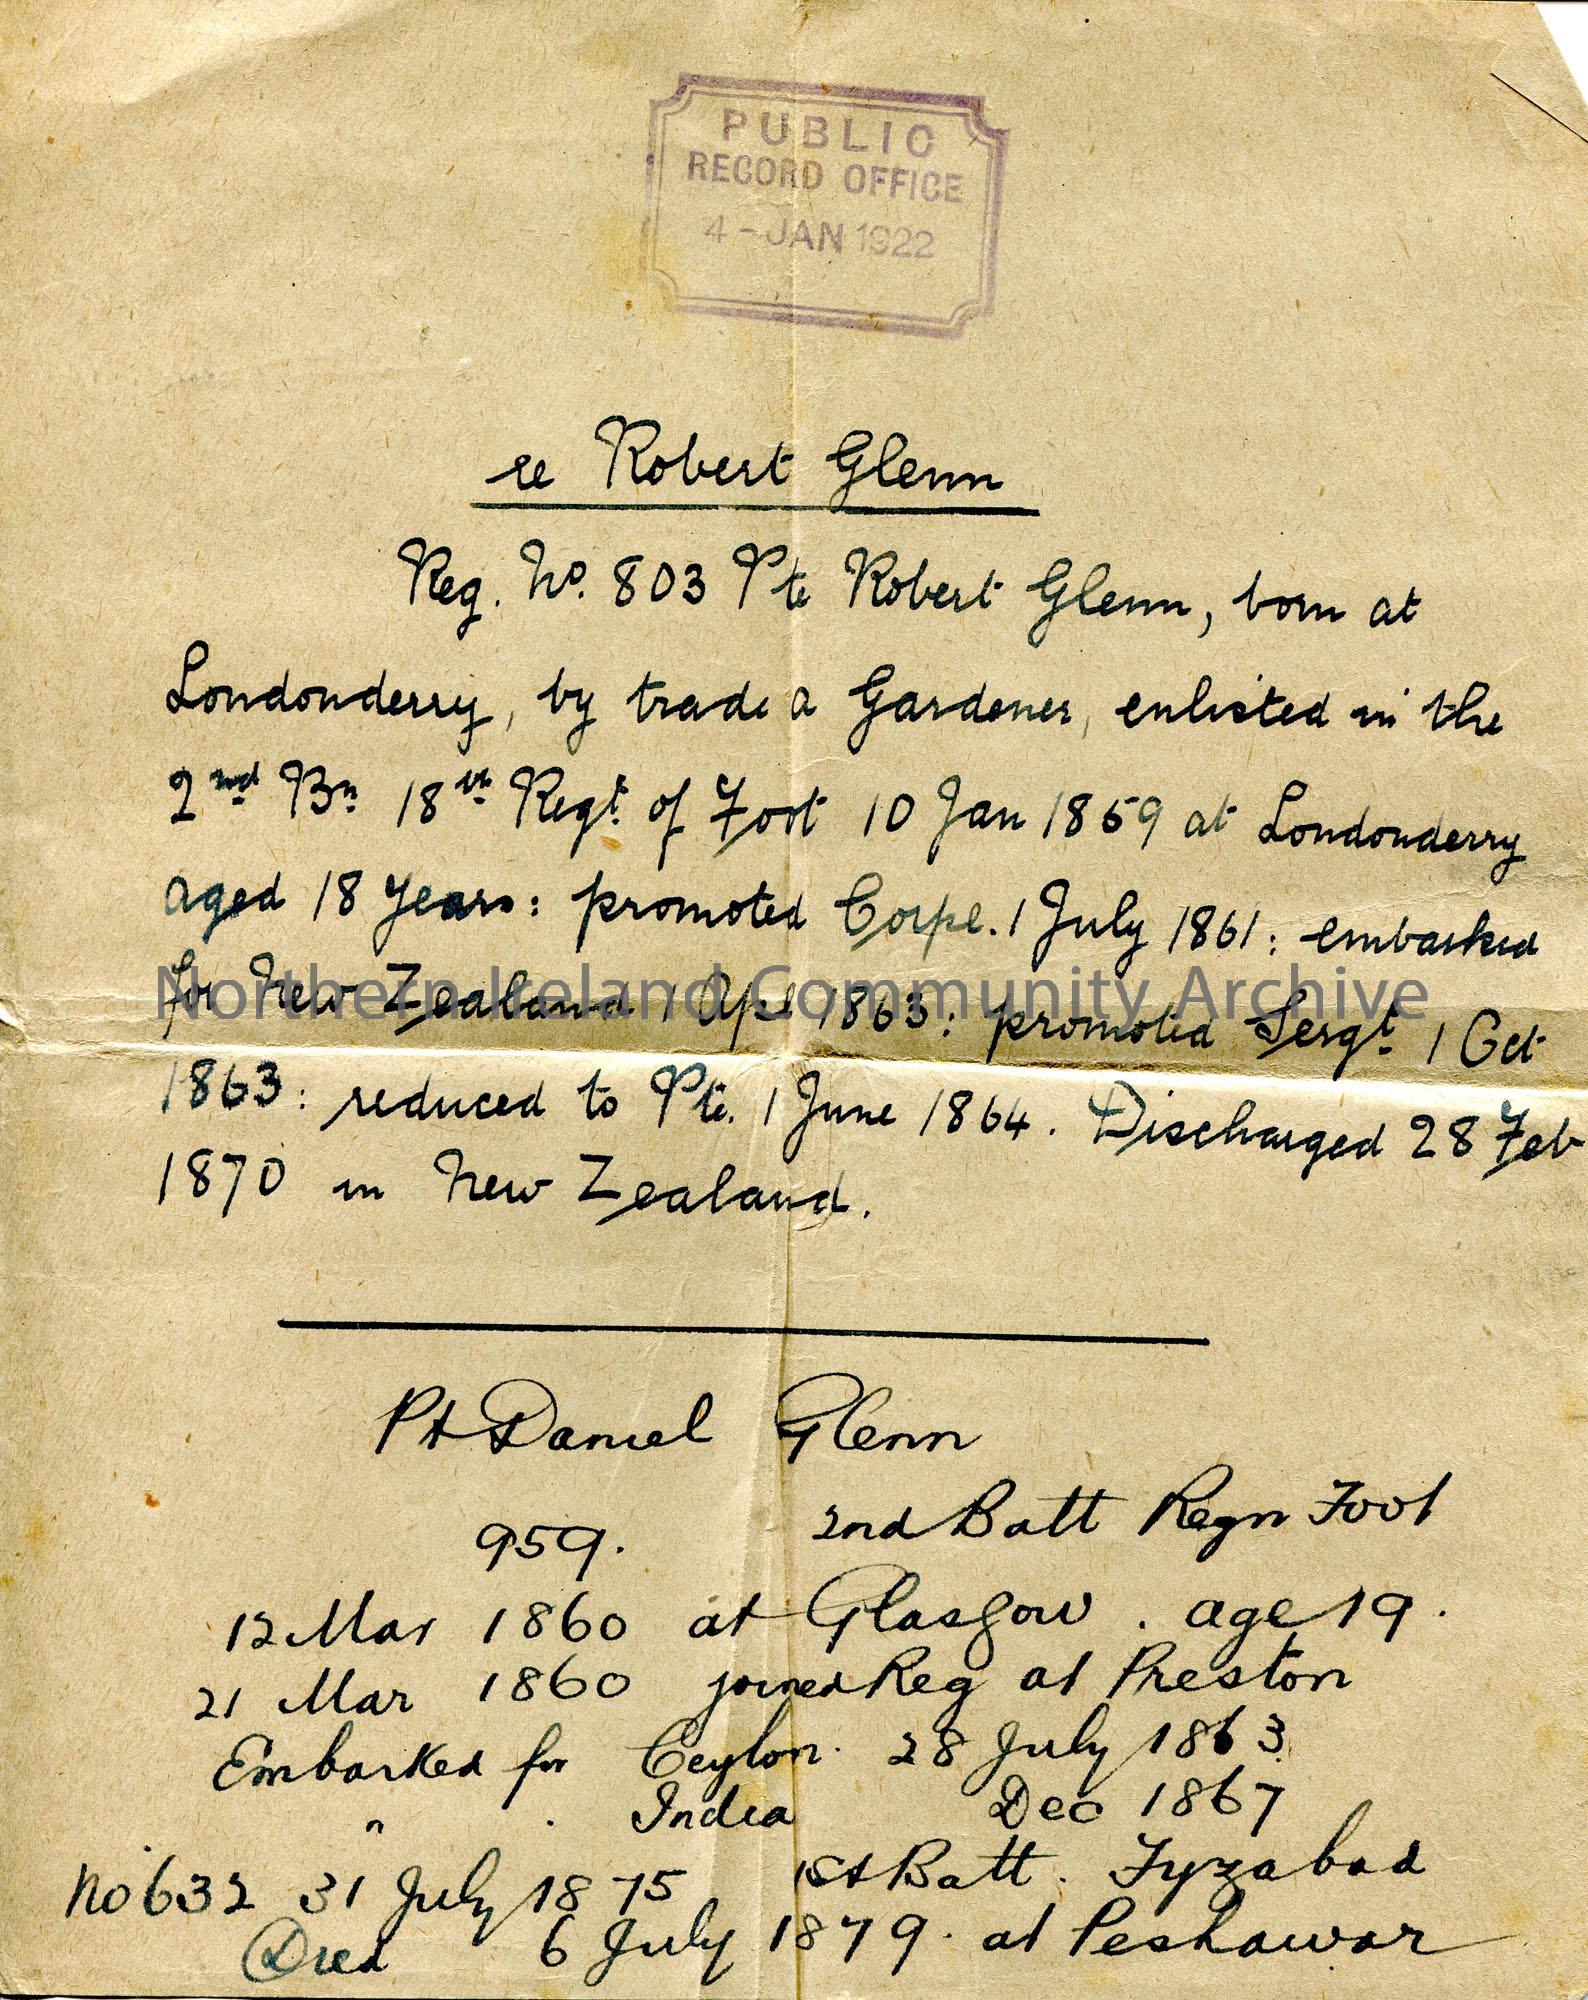 PUBLIC
RECORD OFFICE
4 - JAN 1922
re Robert Glenn
Reg. No. 803 Pte Robert Glenn, born at
Londonderry, by trade a Gardener, enlisted in the
2nd Bn 18th Regt. of Foot 10 Jan 1859 at Londonderry
aged 18 years: promoted Corpl. 1 July 1861: embarked
for New Zealand 1 Apl 1863: promoted Sergt. 1 Oct
Northern Ireland Community Archive
1863: reduced to Pte. 1 June 1864. Discharged 28 Feb
1870 in New Zealand.
Pt Daniel Glenn
959. 2nd Batt Regn Foot
12 Mar 1860 at Glasgow. age 19.
21 Mar 1860 joined Reg at Preston
Embarked for Ceylon. 28 July 1863.
" . India Dec 1867
No 632 31 July 1875 1st Batt. Fyzabad
Died 6 July 1879. at Peshawar